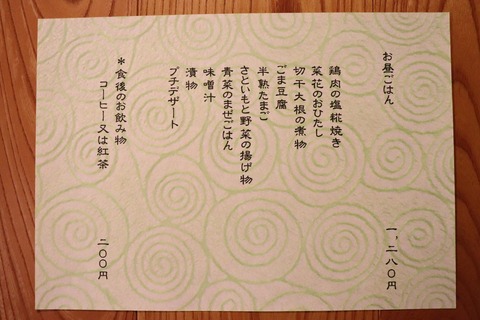 お昼ごはん 一、二八〇円
鶏肉の塩糀焼き
菜花のおひたし
切干大根の煮物
ごま豆腐
半熟たまご
さといもと野菜の揚げ物
青菜のまぜごはん
味噌汁
漬物
プチデザート
＊食後のお飲み物
コーヒー又は紅茶 二〇〇円